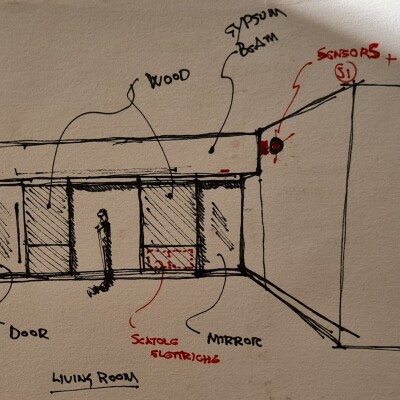 GYPSUM
BEAM
WOOD
SENSORS +
S1
DOOR
SCATOLE
ELETTRICHE
MIRROR
LIVING ROOM